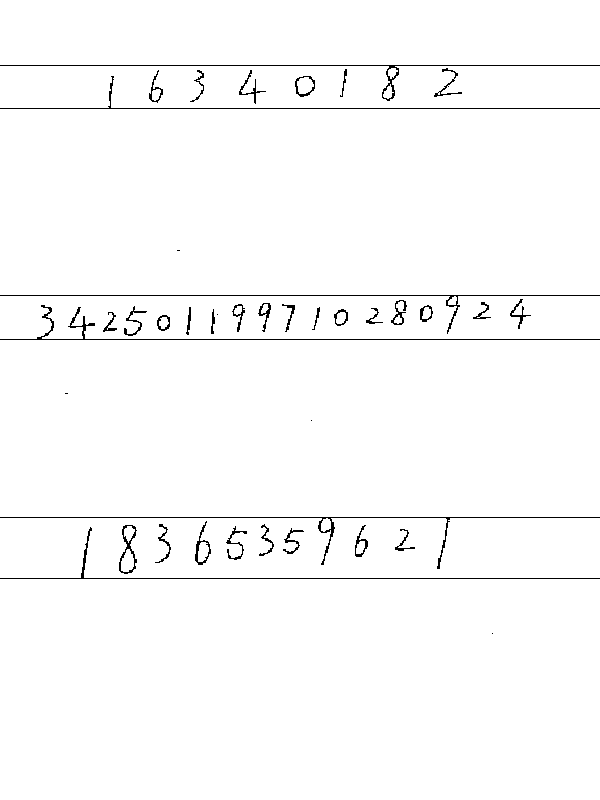 16340182
342501199710280924
18365359621